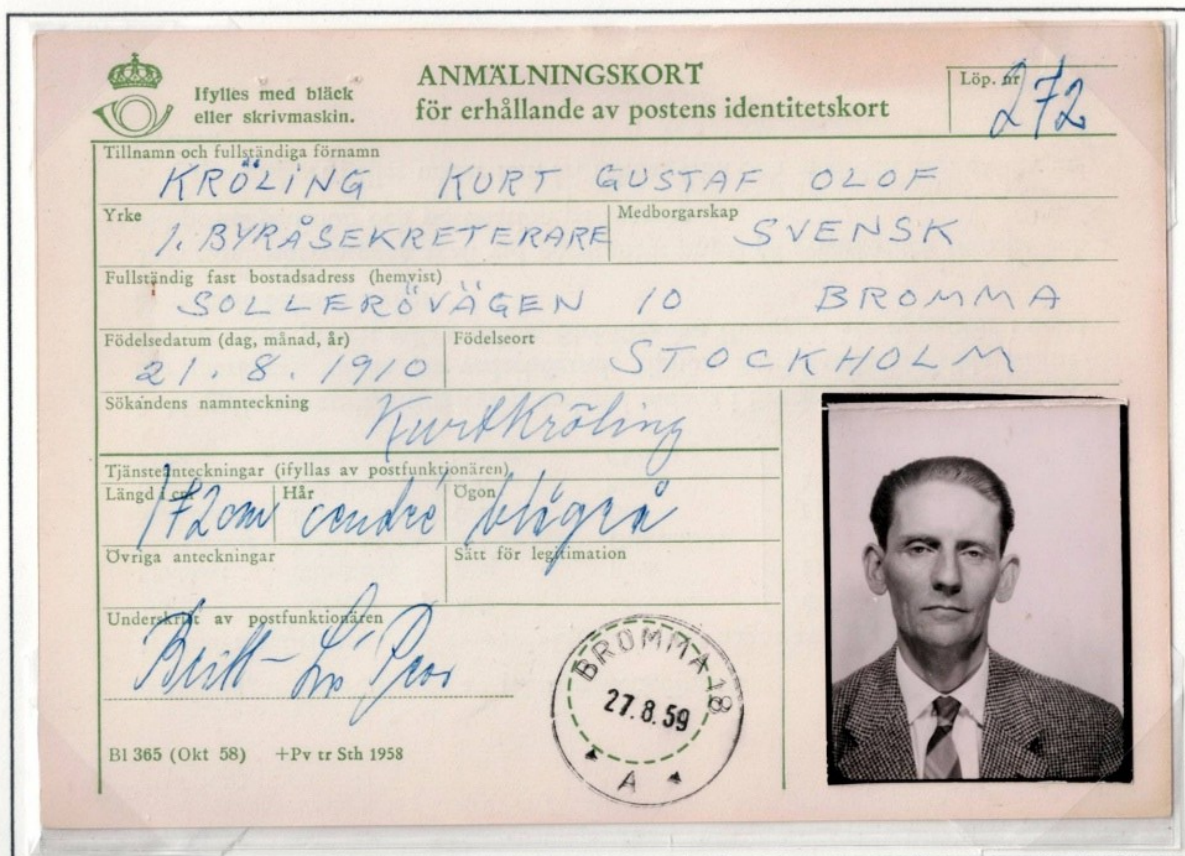 Ifylles med bläck
eller skrivmaskin.
ANMÄLNINGSKORT
för erhållande av postens identitetskort
Löp. nr
272
Tillnamn och fullständiga förnamn
KRÖLING KURT GUSTAF OLOF
Yrke
1. BYRÅSEKRETERARE
Medborgarskap
SVENSK
Fullständig fast bostadsadress (hemvist)
SOLLERÖVÄGEN 10 BROMMA
Födelsedatum (dag, månad, år)
21. 8. 1910
Födelseort
STOCKHOLM
Sökandens namnteckning
Kurt Kröling
Tjänsteanteckningar (ifyllas av postfunktionären)
Längd i cm
172 cm
Hår
cendré
Ögon
blågrå
Övriga anteckningar
Sätt för legitimation
Underskrift av postfunktionären
Britt-
BROMMA 18
27.8.59
A
Bl 365 (Okt 58) +Pv tr Sth 1958